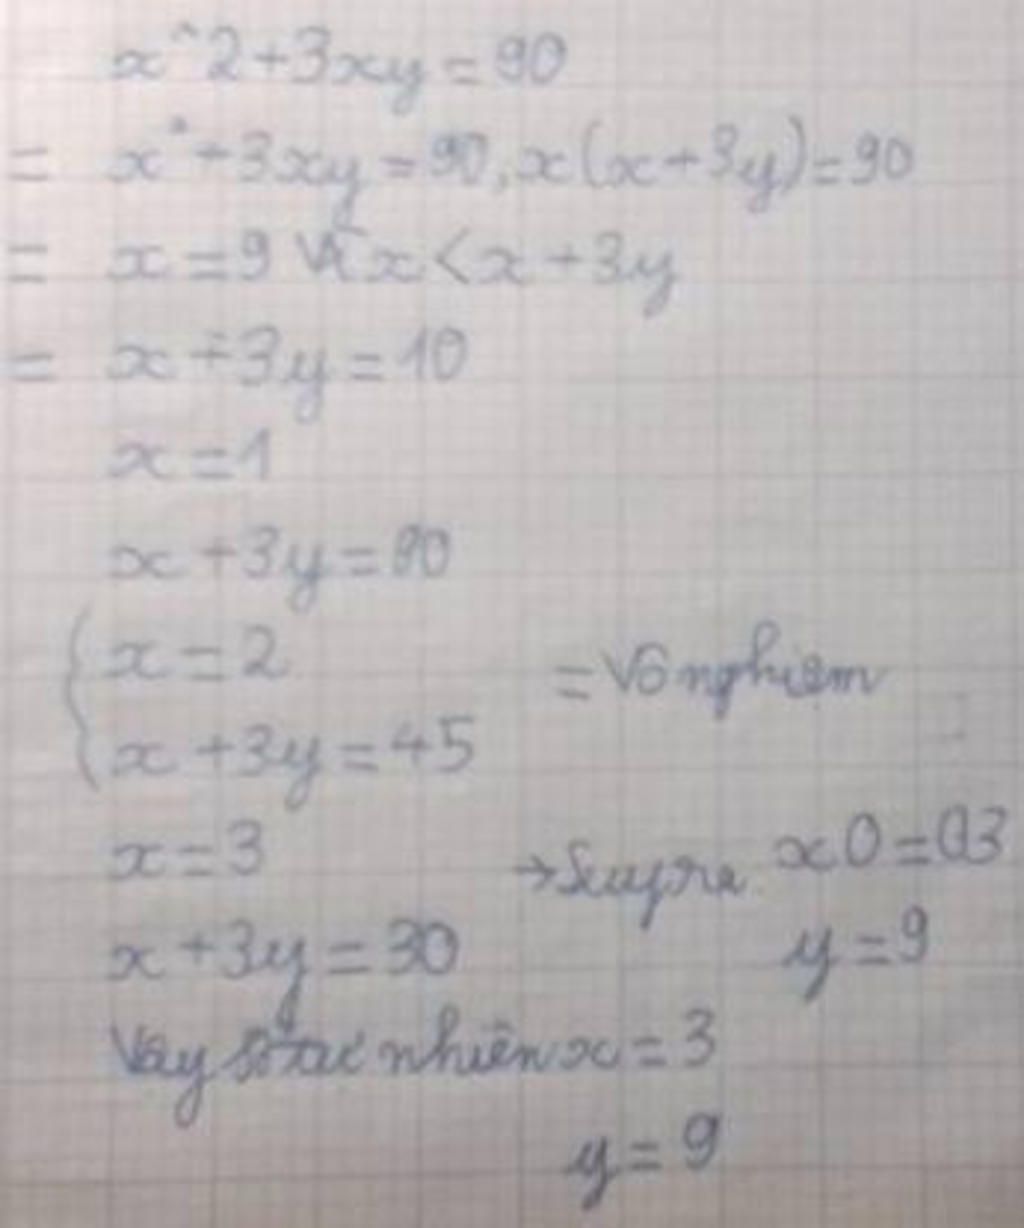 x^2+3xy=90
= x²+3xy=90, x(x+3y)=90
= x=9 Vì x<x+3y
= x+3y=10
x=1
x+3y=90
x=2
= Vô nghiệm
x+3y=45
x=3
→Suy ra x0=03
x+3y=30
y=9
Vậy số tự nhiên x=3
y=9